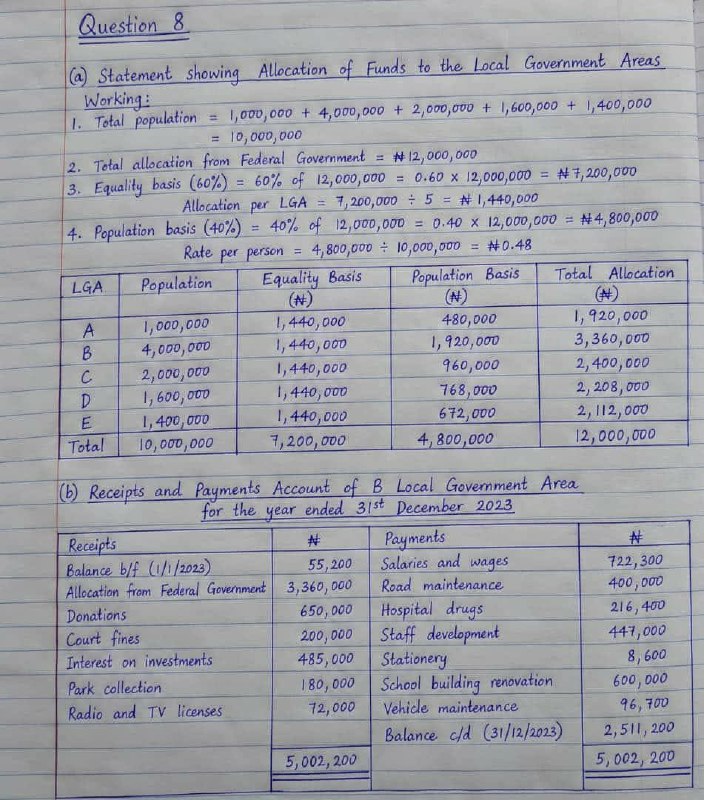 Question 8
(a) Statement showing Allocation of Funds to the Local Government Areas
Working:
1. Total population = 1,000,000 + 4,000,000 + 2,000,000 + 1,600,000 + 1,400,000
= 10,000,000
2. Total allocation from Federal Government = ₦12,000,000
3. Equality basis (60%) = 60% of 12,000,000 = 0.60 × 12,000,000 = ₦7,200,000
Allocation per LGA = 7,200,000 ÷ 5 = ₦1,440,000
4. Population basis (40%) = 40% of 12,000,000 = 0.40 × 12,000,000 = ₦4,800,000
Rate per person = 4,800,000 ÷ 10,000,000 = ₦0.48
LGA Population Equality Basis Population Basis Total Allocation
(₦) (₦) (₦)
A 1,000,000 1,440,000 480,000 1,920,000
B 4,000,000 1,440,000 1,920,000 3,360,000
C 2,000,000 1,440,000 960,000 2,400,000
D 1,600,000 1,440,000 768,000 2,208,000
E 1,400,000 1,440,000 672,000 2,112,000
Total 10,000,000 7,200,000 4,800,000 12,000,000
(b) Receipts and Payments Account of B Local Government Area
for the year ended 31st December 2023
Receipts ₦ Payments ₦
Balance b/f (1/1/2023) 55,200 Salaries and wages 722,300
Allocation from Federal Government 3,360,000 Road maintenance 400,000
Donations 650,000 Hospital drugs 216,400
Court fines 200,000 Staff development 447,000
Interest on investments 485,000 Stationery 8,600
Park collection 180,000 School building renovation 600,000
Radio and TV licenses 72,000 Vehicle maintenance 96,700
Balance c/d (31/12/2023) 2,511,200
5,002,200 5,002,200